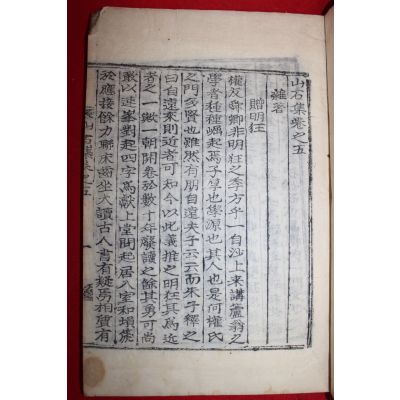 山石集卷之五
雜著
贈明狂
權友舜卿非明狂之季方乎一自沙上來講蘆翁之
學者種種崛起焉子皐也學源也其人也是何權氏
之門多賢也雖然有朋自遠夫子云云而朱子釋之
曰自遠來則近者可知今以此義推之明狂其爲近
者之一歟一朝開卷於數十年廢讀之餘其勇可尚
敢以連峯對起四字爲獻上堂問起居入室和塤箎
於應接餘力聯床齒坐大讀古人書有疑焉相質有
山石集卷之五
一